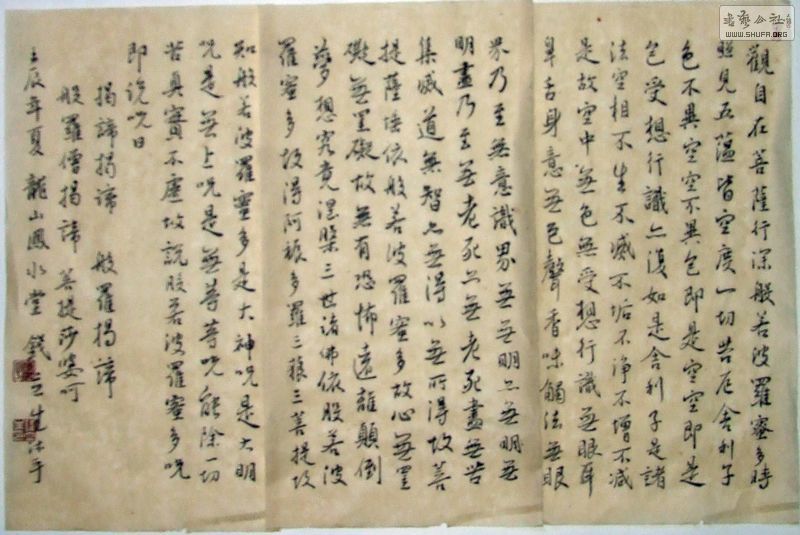 觀自在菩薩行深般若波羅蜜多時
照見五蘊皆空度一切苦厄舍利子
色不異空空不異色即是空空即是
色受想行識亦復如是舍利子是諸
法空相不生不滅不垢不淨不增不減
是故空中無色無受想行識無眼耳
鼻舌身意無色聲香味觸法無眼
界乃至無意識界無無明亦無明無
明盡乃至無老死亦無老死盡無苦
集滅道無智亦無得以無所得故菩
提薩埵依般若波羅蜜多故心無罣
礙無罣礙故無有恐怖遠離顛倒
夢想究竟涅槃三世諸佛依般若波
羅蜜多故得阿耨多羅三藐三菩提故
知般若波羅蜜多是大神咒是大明
咒是無上咒是無等等咒能除一切
苦真實不虛故說般若波羅蜜多咒
即說咒曰
揭諦揭諦 般羅揭諦
般羅僧揭諦 菩提莎婆呵
壬辰年夏 龍山鳳水堂 錢 生沐手
WWW.SHUFA.ORG